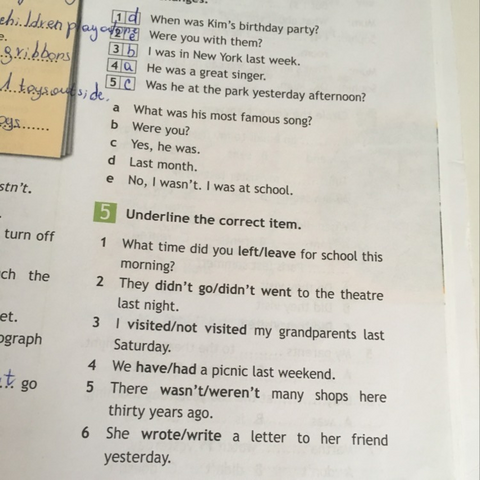 children play
1 d When was Kim's birthday party?
2 e Were you with them?
gribbons
3 b I was in New York last week.
4 a He was a great singer.
toys outside.
5 c Was he at the park yesterday afternoon?
a What was his most famous song?
b Were you?
c Yes, he was.
d Last month.
e No, I wasn't. I was at school.
5 Underline the correct item.
turn off
1 What time did you left/leave for school this
morning?
2 They didn't go/didn't went to the theatre
last night.
3 I visited/not visited my grandparents last
Saturday.
4 We have/had a picnic last weekend.
go
5 There wasn't/weren't many shops here
thirty years ago.
6 She wrote/write a letter to her friend
yesterday.